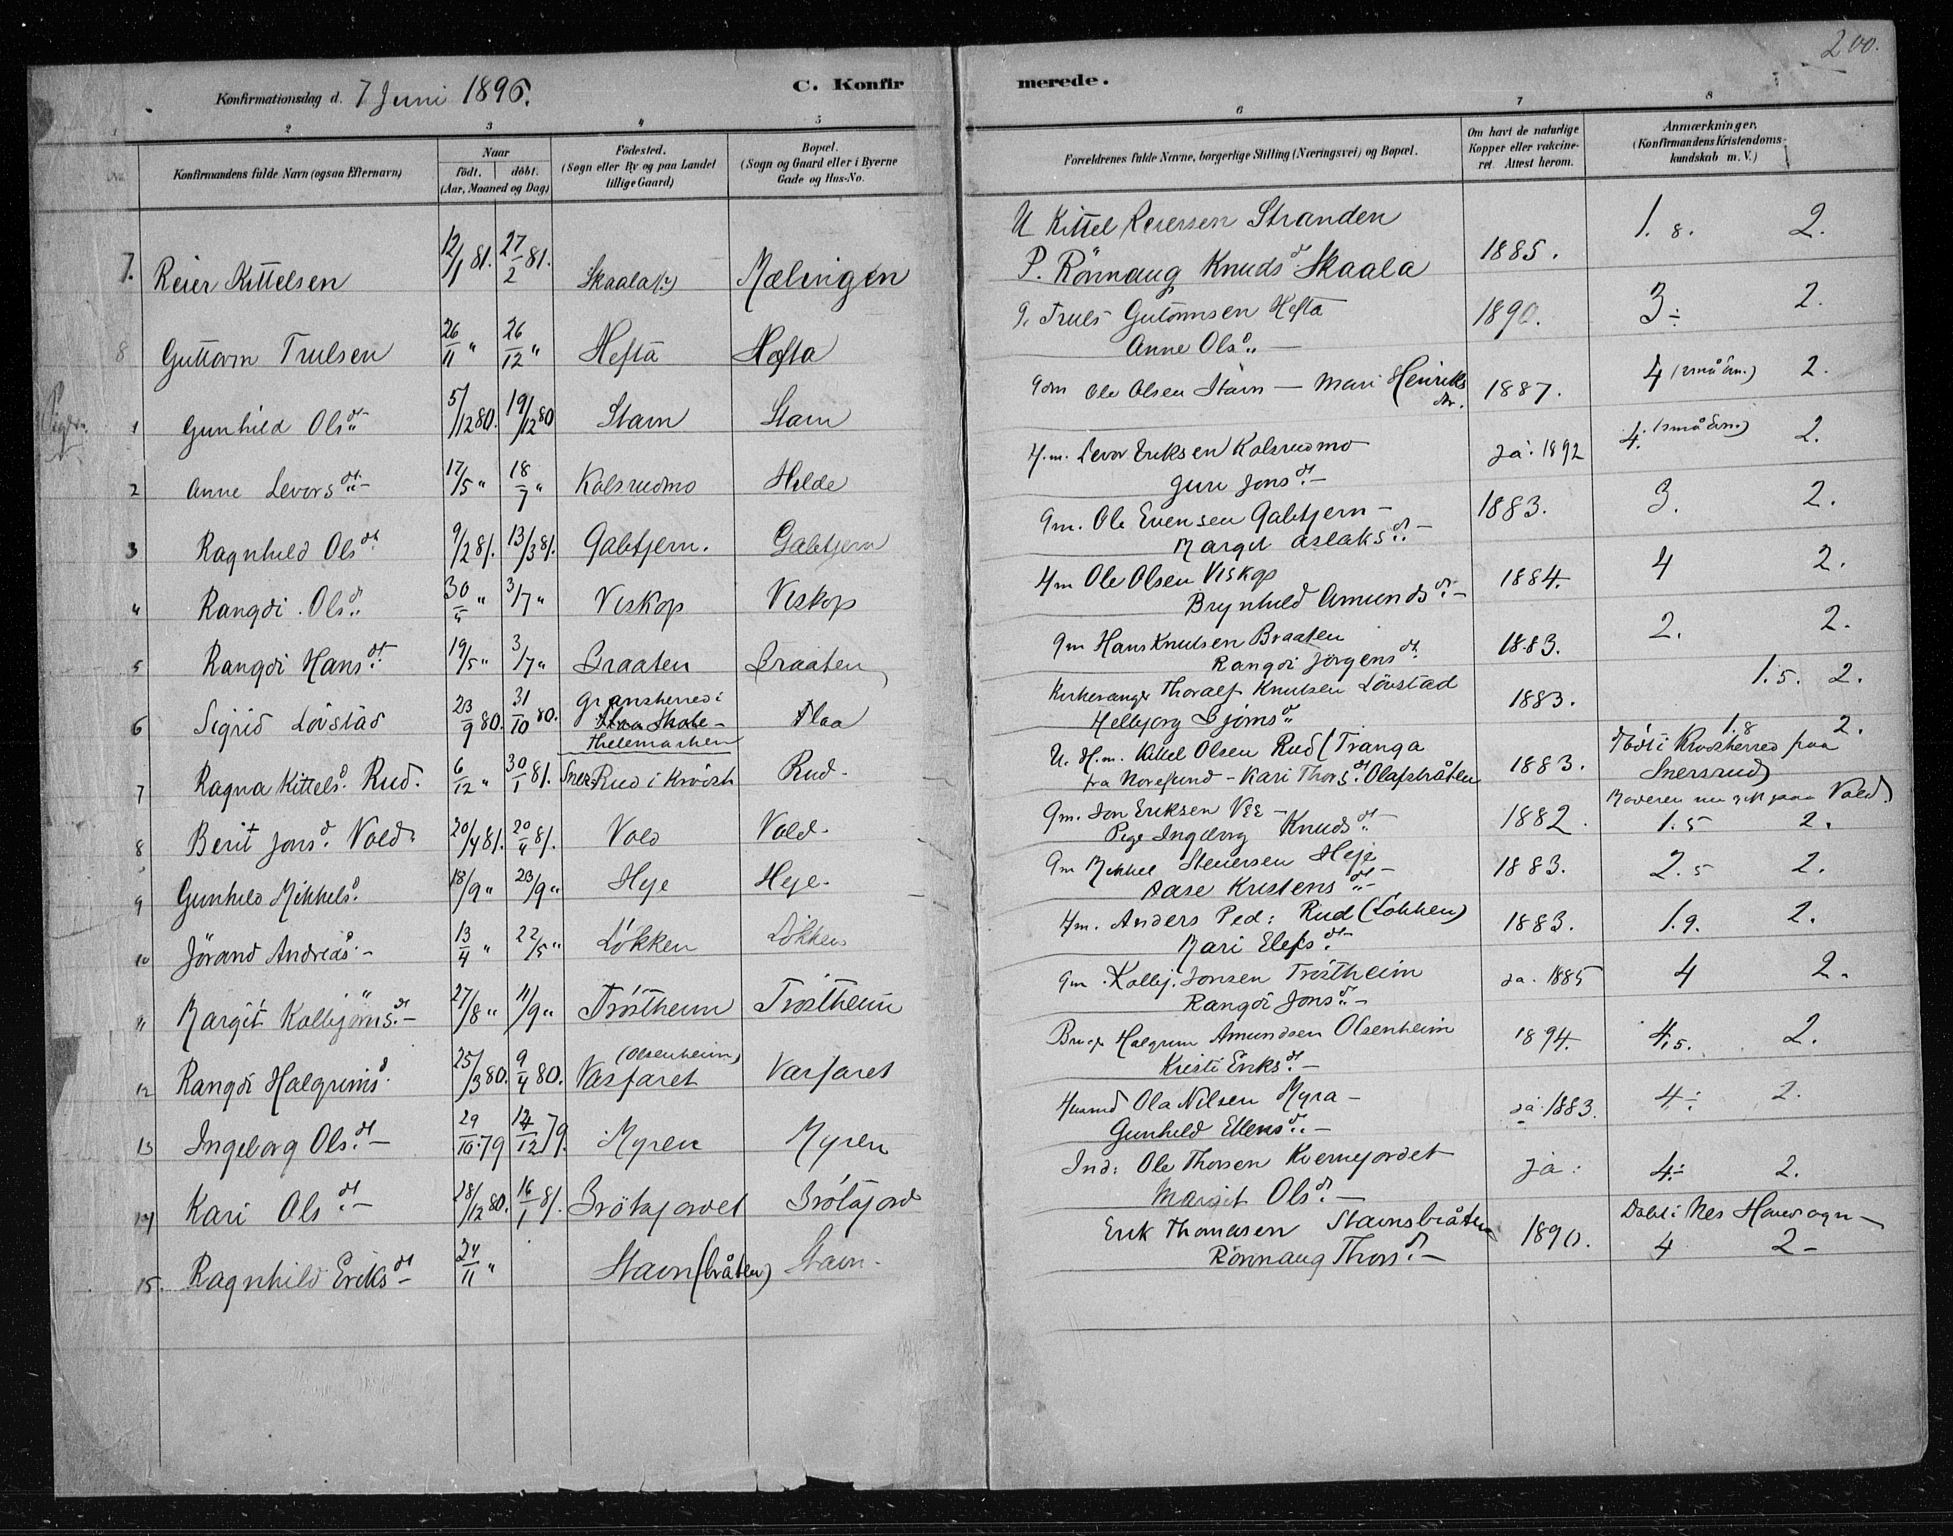 200.
Konfirmationsdag d. 7 Juni 1896. C. Konfir merede.
1 2 3 4 5 6 7 8
Konfirmandens fulde Navn (ogsaa Efternavn)
Naar
født. døbt.
(Aar, Maaned og Dag)
Fødested.
(Sogn eller By og paa Landet
tillige Gaard)
Bopæl.
(Sogn og Gaard eller i Byerne
Gade og Hus-No.
Forældrenes fulde Navne, borgerlige Stilling (Næringsvei) og Bopæl.
Om havt de naturlige
Kopper eller vakcine-
ret. Attest herom.
Anmærkninger,
(Konfirmandens Kristendoms-
kundskab m. V.)
7. Reier Kittelsen 12/1 81. 27/2 81. Skaala(?) Mælingen U Kittel Reiersen Stranden 1885. 1.8. 2.
P. Rönnaug Knudsd. Skaala
8 Guttorm Trulsen 26/11 " 26/12 " Hefta Hefta G. Truls Gutormsen Hefta 1890. 3÷ 2.
Anne Olsd. —
Piger.
1 Gunhild Olsdt. 5/12 80. 19/12 80 Stavn Stavn Gdm Ole Olsen Stavn — Mari Henriks 1887. 4 (små ân.) 2.
dtr.
2 Anne Levorsdt. — 17/5 " 18/7 " Kolsrudmo Hilde H.m. Levor Eriksen Kolsrudmo ja. 1892 4. (små ân.) 2.
Guri Jonsdt. —
3 Ragnhild Olsdt 9/2 81. 13/3 81. Gabtjern. Gabtjern Gm. Ole Evensen Gabtjern — 1883. 3. 2.
Margit Aslaksdt. —
4 Rangdi Olsd. 30/5 " 3/7 " Viskop Viskop Hm Ole Olsen Viskop 1884. 4 2.
Brynhild Amundsd. —
5 Rangdi Hansdt. 19/5 " 3/7 " Braaten Braaten Gm Hans Knutsen Braaten 1883. 2. 2.
Rangdi Jörgensdt.
6 Sigrid Lövstad 23/9 80. 31/10 80. Gransherred i Thelemarken Flaa Kirkesanger Thoralf Knutsen Lövstad 1883. 1.5. 2.
Helbjorg Bjørnsd.
7 Ragna Kittelsd. Rud. 6/12 " 30/1 81. Sners Rud i Krödsh Rud. U. H.m. Kittel Olsen Rud (Tranga 1883. 1.8 2.
fra Noresund — Kari Thorsdt. Olafsbråten
Födt i Krodsherred paa
Snersrud)
8 Berit Jonsd. Vold. 20/4 81. 20/4 81. Vold Vold. Gm. Jon Eriksen Vee — 1882. 1.5 2.
Pige Ingeborg Knudsdt. —
Moderen nu gift paa Vold)
9 Gunhild Mikkelsd. 18/9 " 23/9 " Heje Heje. Gm Mikkel Steversen Heje 1883. 2.5 2.
Aase Kristensdt. —
10 Jörand Andreasd. — 13/4 " 22/5 " Lökken Lökken Hm. Anders Ped: Rud (Lökken) 1883. 1.9. 2.
Mari Elefsdt. —
11 Margit Kolbjörnsdt. — 27/8 " 11/9 " Tröstheim Tröstheim Gm. Kolbj. Jonsen Tröstheim ja. 1885 4 2.
Rangdi Jonsd. —
12 Rangdi Halgrimsd. 25/3 80. 9/4 80. (Olsenheim) Varfaret Varfaret Brug. Halgrim Amundsen Olsenheim 1894. 4.5. 2.
Kristi Eriksdt. —
13 Ingeborg Olsdt. — 29/10 79 14/12 79. Myren Myren Husmd Ola Nilsen Myra — ja. 1883. 4÷ 2.
Gunhild Ellensd. —
14 Kari Olsdt. — 28/12 80. 16/1 81. Brötajordet Brötajord Ind: Ole Thorsen Kvernejordet ja. 4÷ 2.
Margit Olsd. —
15. Ragnhild Eriksdt — 24/11 " Stavn (bråten) Stavn. Erik Thomasen Stavnsbråten 1890. 4 2 —
Rönnaug Thorsd. —
Döbt i Nes Hovedsogn —